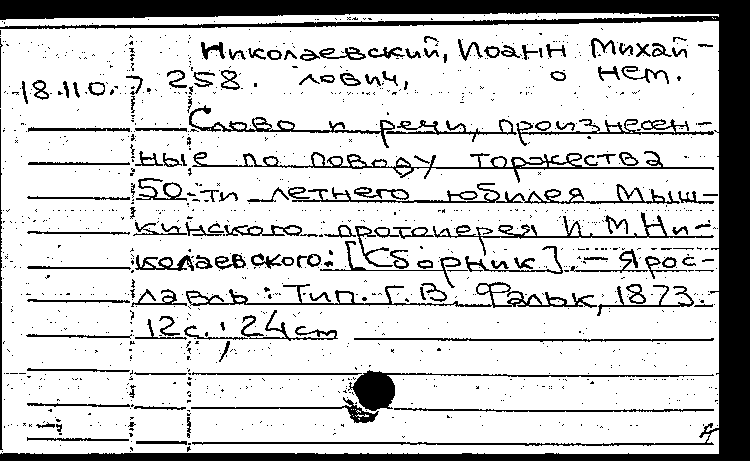 Николаевский, Иоанн Михай-
18.110.7.258. лович, о нем.
Слово и речи, произнесен-
ные по поводу торжества
50-ти летнего юбилея Мыш-
кинского протоиерея И.М.Ни-
колаевского: [Сборник]. – Ярос-
лавль: Тип. Г.В. Фальк, 1873. –
12с.; 24cm